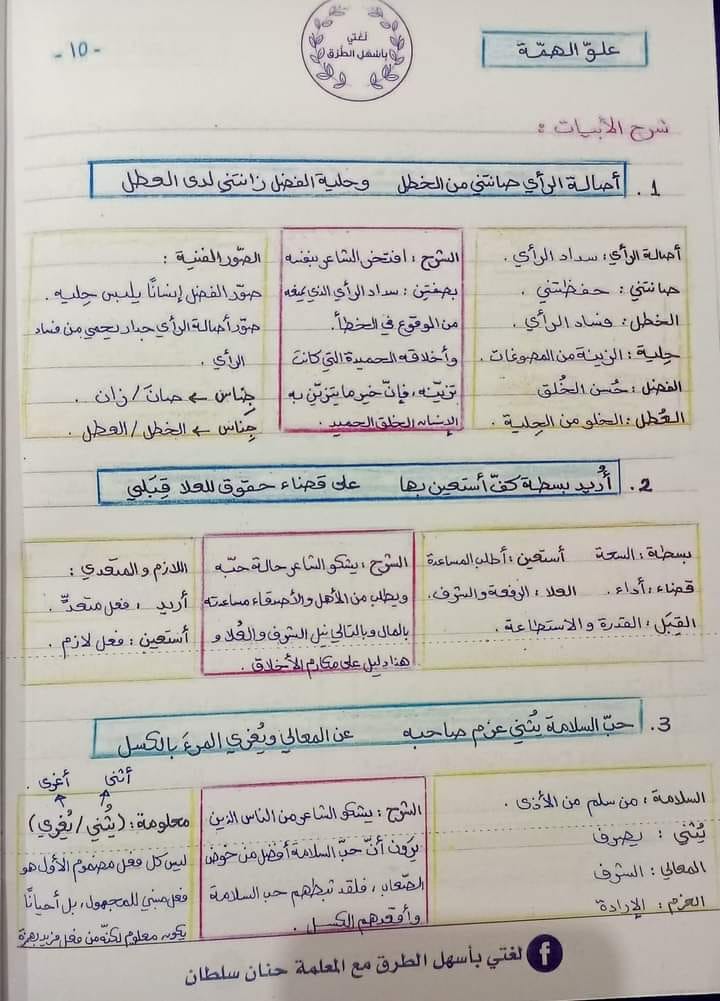 علوّ الهمّة
لغتي
بأسهل الطرق
- ١٥ -
شرح الأبيات :
1. أصالة الرأي صانتني من الخطل وحلية الفضل زانتني لدى العطل
أصالة الرأي : سداد الرأي .
صانتني : حفظتني .
الخطل : فساد الرأي .
حلية : الزينة من المصوغات .
الفضل : حُسن الخُلق
العُطل : الخلو من الحِلية .
الشرح : افتخر الشاعر بنفسه
بصفتين : سداد الرأي الذي يميّزه
من الوقوع في الخطأ .
وأخلاقه الحميدة التي كانت
تزيّنه ، فإنّ خير ما يتزيّن به
الإنسان الخلق الحميد .
الصّور الفنية :
صوّر الفضل إنسانًا يلبس حِليه .
صوّر أصالة الرأي جدار يحمي من فساد
الرأي .
جِناس ← صانَ / زان .
جِناس ← الخطل / العطل .
2. أُريد بسطة كفّ أستعين بها على قضاء حقوق للعلا قِبَلي
بسطة : السعة أستعين : أطلب المساعدة
قضاء : أداء . العلا : الرفعة والشرف .
القِبَل : القدرة والاستطاعة .
الشرح : يشكو الشاعر حالة حبّه
ويطلب من الأهل والأصدقاء مساعدته
بالمال وبالتالي نيل الشرف والعُلا و
هذا دليل على مكارم الأخلاق .
اللازم والمتعدي :
أريد : فعل متعدٍّ .
أستعين : فعل لازم .
3. حبّ السلامة يُثني عزم صاحبه عن المعالي ويُغري المرءَ بالكسل
السلامة : من سلم من الأذى .
يُثني : يصرف
المعالي : الشرف
العزم : الإرادة
الشرح : يشكو الشاعر من الناس الذين
يرون أنّ حبّ السلامة أفضل من خوض
الصّعاب ، فلقد ثبطهم حب السلامة
وأقعدهم الكسل .
أثنى أغرى .
معلومة : (يُثني / يُغري)
ليس كل فعل مضموم الأول هو
فعل مبني للمجهول ، بل أحيانًا
يكون معلوم لكنّه من فعل مزيد بهمزة
لغتي بأسهل الطرق مع المعلمة حنان سلطان